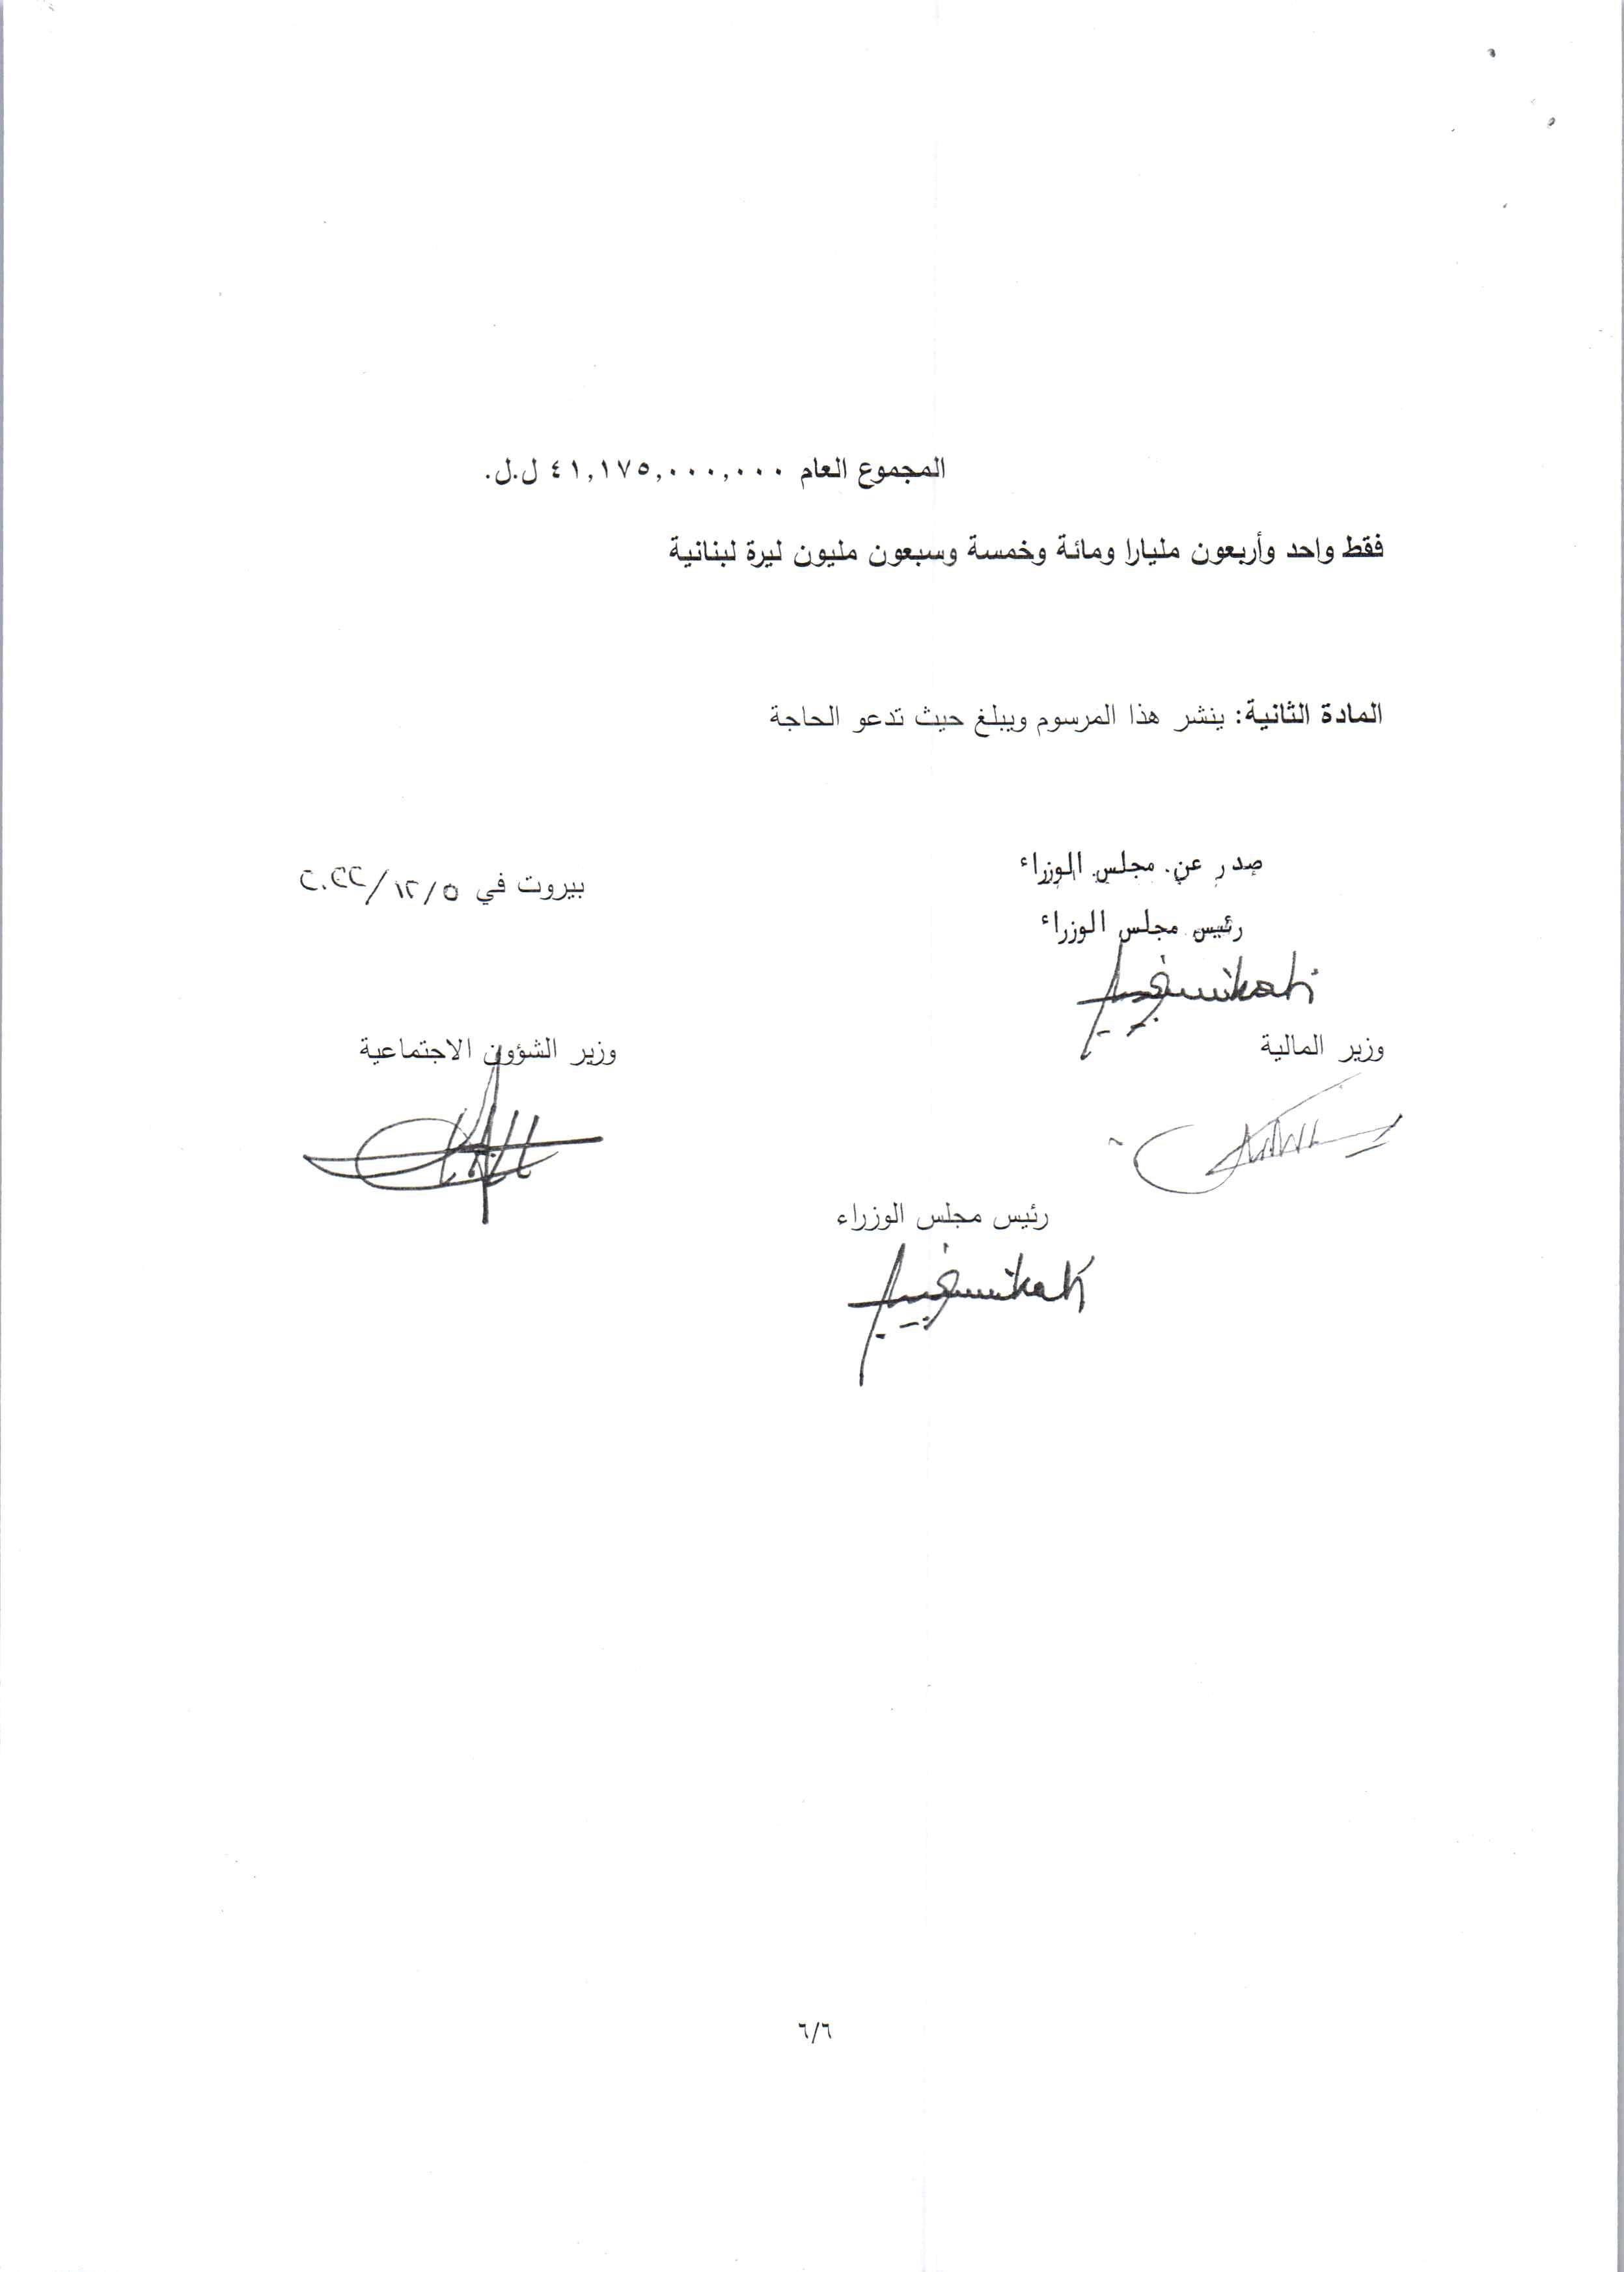 المجموع العام ٤١,١٧٥,٠٠٠,٠٠٠ ل.ل.
فقط واحد وأربعون مليارا ومائة وخمسة وسبعون مليون ليرة لبنانية
المادة الثانية: ينشر هذا المرسوم ويبلغ حيث تدعو الحاجة
صدر عن مجلس الوزراء
بيروت في ٥/١٢/٢٠٢٢
رئيس مجلس الوزراء
وزير المالية
وزير الشؤون الاجتماعية
رئيس مجلس الوزراء
٦/٦